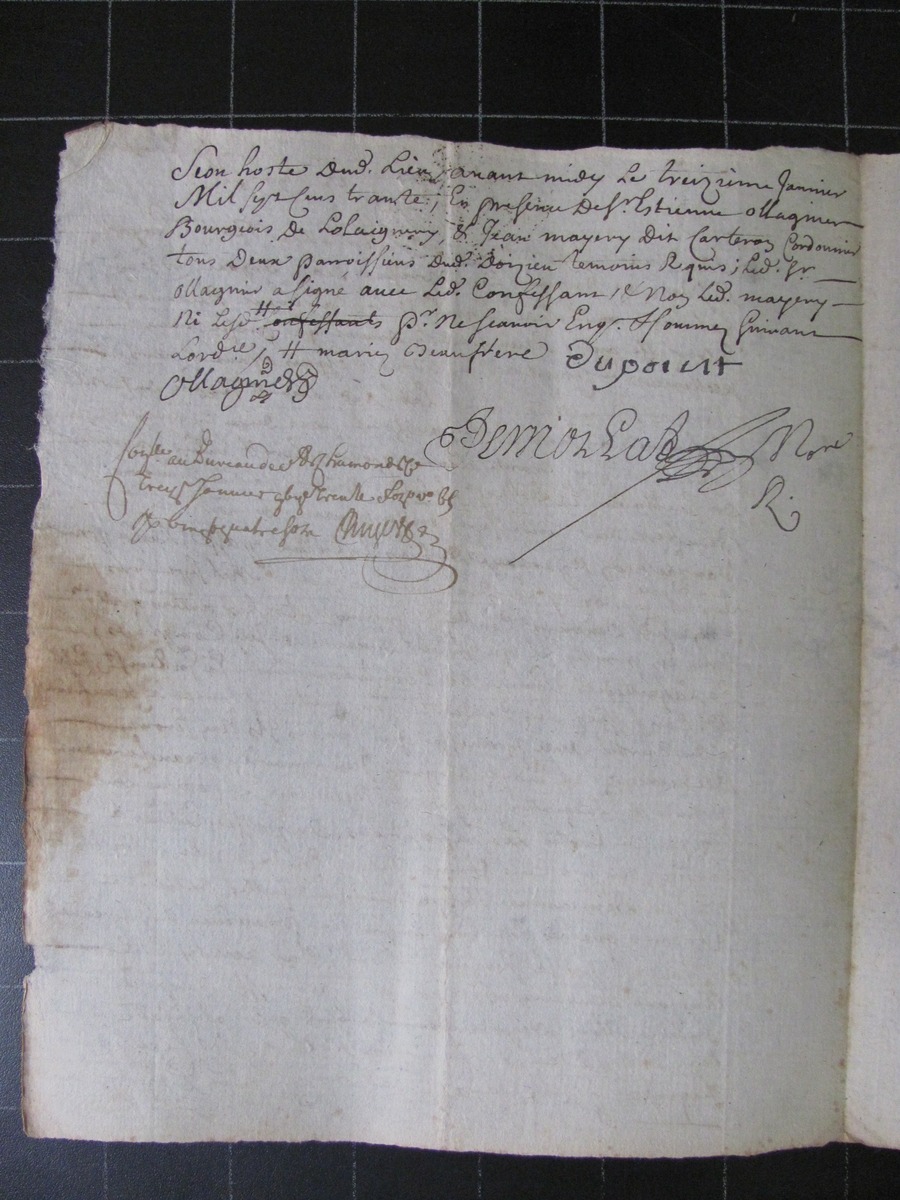 Seon hoste dud. Lieu avant midy le treizieme Janvier
Mil sept cens trante; En presence de sr. Estienne ollagnier
Bourgeois de , & Jean mayery dit Carteron Cordonnier
tous deux parroissiens dud. Doizieu temoins Requis; led. sr.
ollagnier a signé avec led. Confessant, & Non led. mayery
Ni lesd. # confessants pr. ne scavoir Enq. & sommez suivant
Lord. # mariez beaufrere dupouett
Ollagnier
Demorlat Nore
R.
au Bureau de St Chamond le
treize Janvier trente
quatre sols